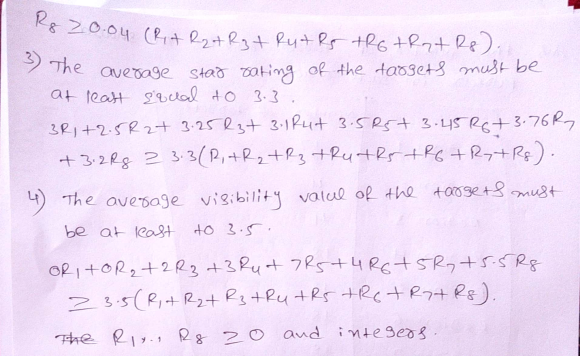 R8 ≥ 0.04 (R1 + R2 + R3 + R4 + R5 + R6 + R7 + R8).
3) The average star rating of the targets must be
at least equal to 3.3.
3R1 + 2.5R2 + 3.25R3 + 3.1R4 + 3.5R5 + 3.45R6 + 3.76R7
+ 3.2R8 ≥ 3.3(R1 + R2 + R3 + R4 + R5 + R6 + R7 + R8).
4) The average visibility value of the targets must
be at least to 3.5.
0R1 + 0R2 + 2R3 + 3R4 + 7R5 + 4R6 + 5R7 + 5.5R8
≥ 3.5(R1 + R2 + R3 + R4 + R5 + R6 + R7 + R8).
The R1,., R8 ≥ 0 and integers.